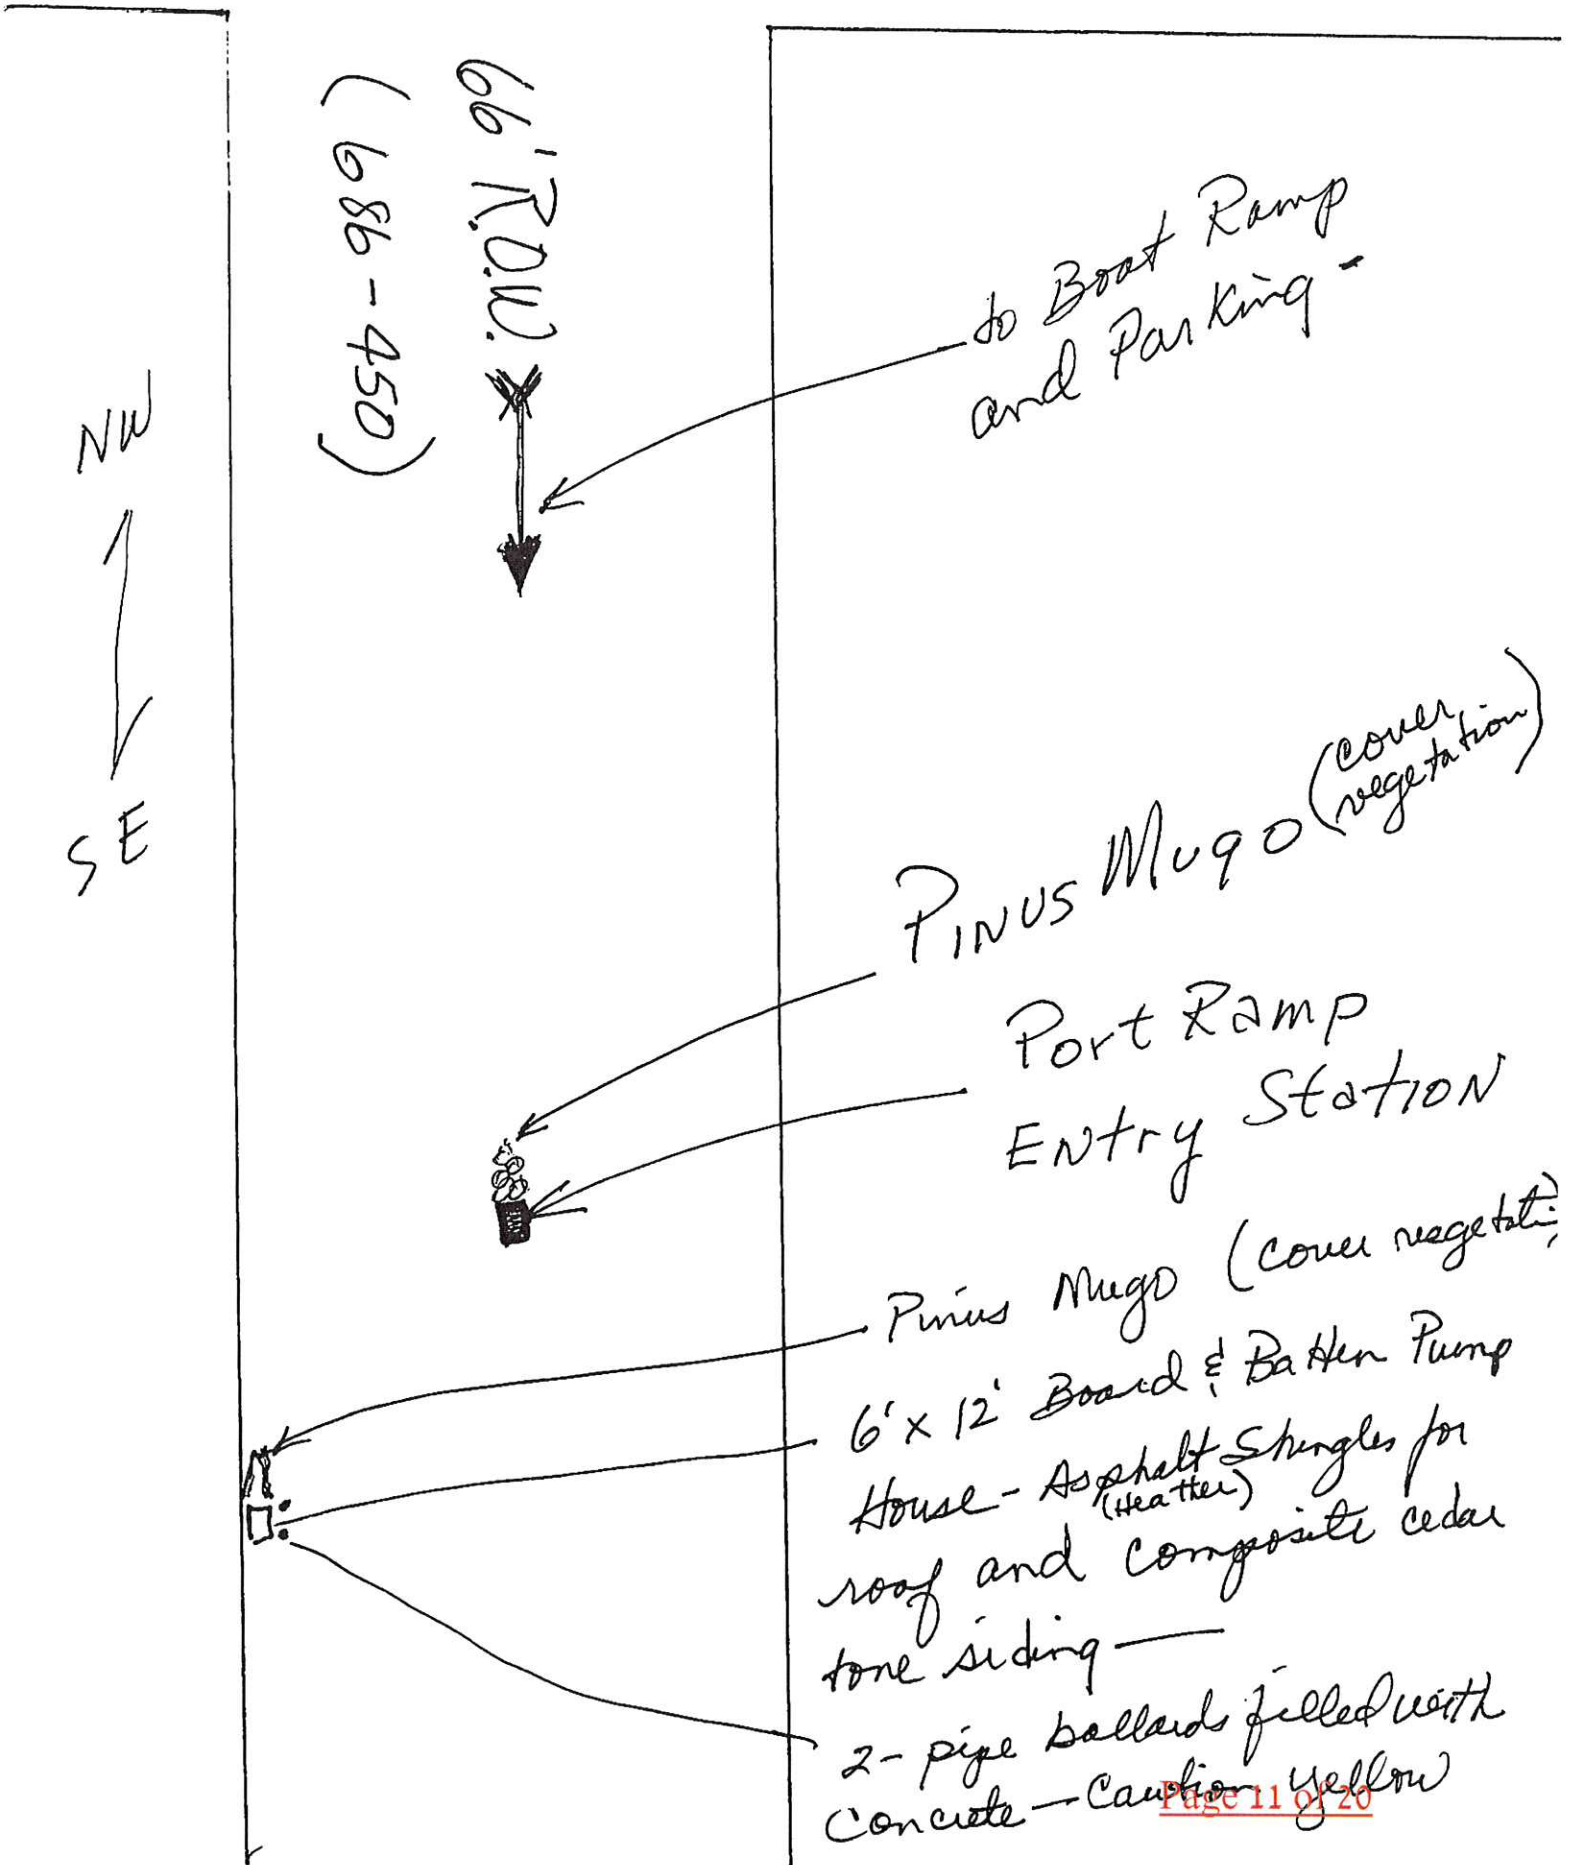 66' R.O.W.
(686-450)
to Boat Ramp
and Parking -
NW
SE
Pinus Mugo (cover
vegetation)
Port Ramp
Entry Station
Pinus Mugo (cover vegetati
6' x 12' Board & Batten Pump
House - Asphalt Shingles for
(Heather)
roof and composite cedar
tone siding —
2 - pipe bollards filled with
Concrete — Caution Yellow
Page 11 of 20